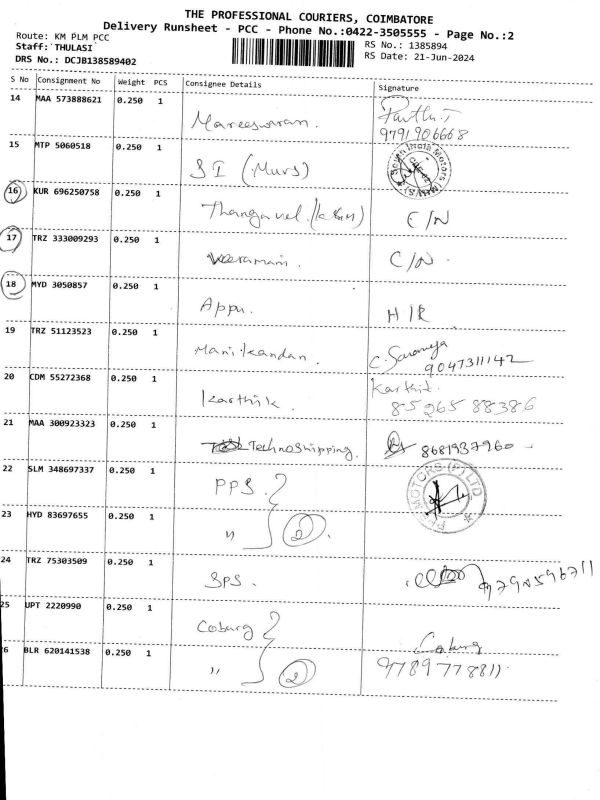 THE PROFESSIONAL COURIERS, COIMBATORE
Delivery Runsheet - PCC - Phone No.:0422-3505555 - Page No.:2
Route: KM PLM PCC
Staff: THULASI
DRS No.: DCJB138589402
RS No.: 1385894
RS Date: 21-Jun-2024
S No Consignment No Weight PCS Consignee Details Signature
14 MAA 573888621 0.250 1 Mareeswaran. Parthi.T
9791906668
15 MTP 5060518 0.250 1 SI (Murs)
16 KUR 696250758 0.250 1 Thangavel. C/N
17 TRZ 333009293 0.250 1 Veeramani. C/N.
18 MYD 3050857 0.250 1 Appu. H/R
19 TRZ 51123523 0.250 1 Manikandan. C. Saranya
9047311142
20 CDM 55272368 0.250 1 Karthik. Karthik.
85265 88386
21 MAA 300923323 0.250 1 Technoshipping. 8681937960
22 SLM 348697337 0.250 1 PPS.
MOTORS (P) LTD
23 HYD 83697655 0.250 1 " 2
24 TRZ 75303509 0.250 1 SPS.
25 UPT 2220990 0.250 1 Coburg Coburg
26 BLR 620141538 0.250 1 " 2 9789778811